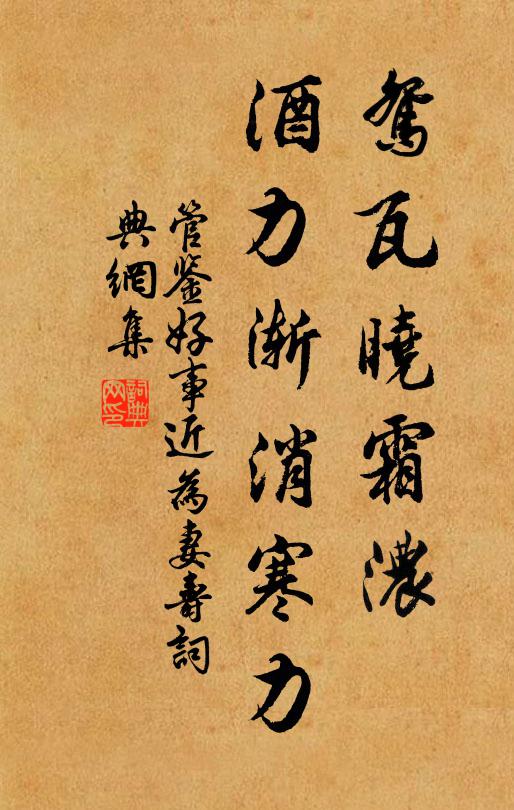 鴛瓦曉霜濃
酒力漸消寒力
管鉴好事近為妻壽詞
典網集
詞典網印